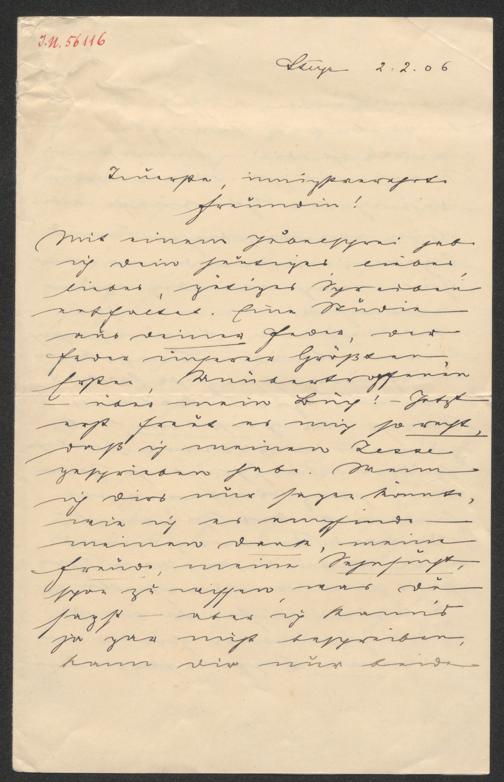 I.N. 56116
Steyr 2.2.06
Teuerste, innigstverehrte
Freundin!
Mit einem Jubelschrei hab
ich dein heutiges, liebes,
liebes, gütiges Schreiben
entfaltet. Eine Studie
aus deiner Feder, der
Feder unserer Größten
Ersten, Unübertroffenen
– über mein Buch! – Jetzt
erst freut es mich so recht,
daß ich meinen Jesse
geschrieben habe. Wenn
ich dirs nur sagen könnte,
wie ich es empfinde –
meinen Dank, meine
Freude, meine Sehnsucht,
schon zu wissen, was du
sagst – aber ich kann's
ja gar nicht beschreiben,
kann dir nur beide